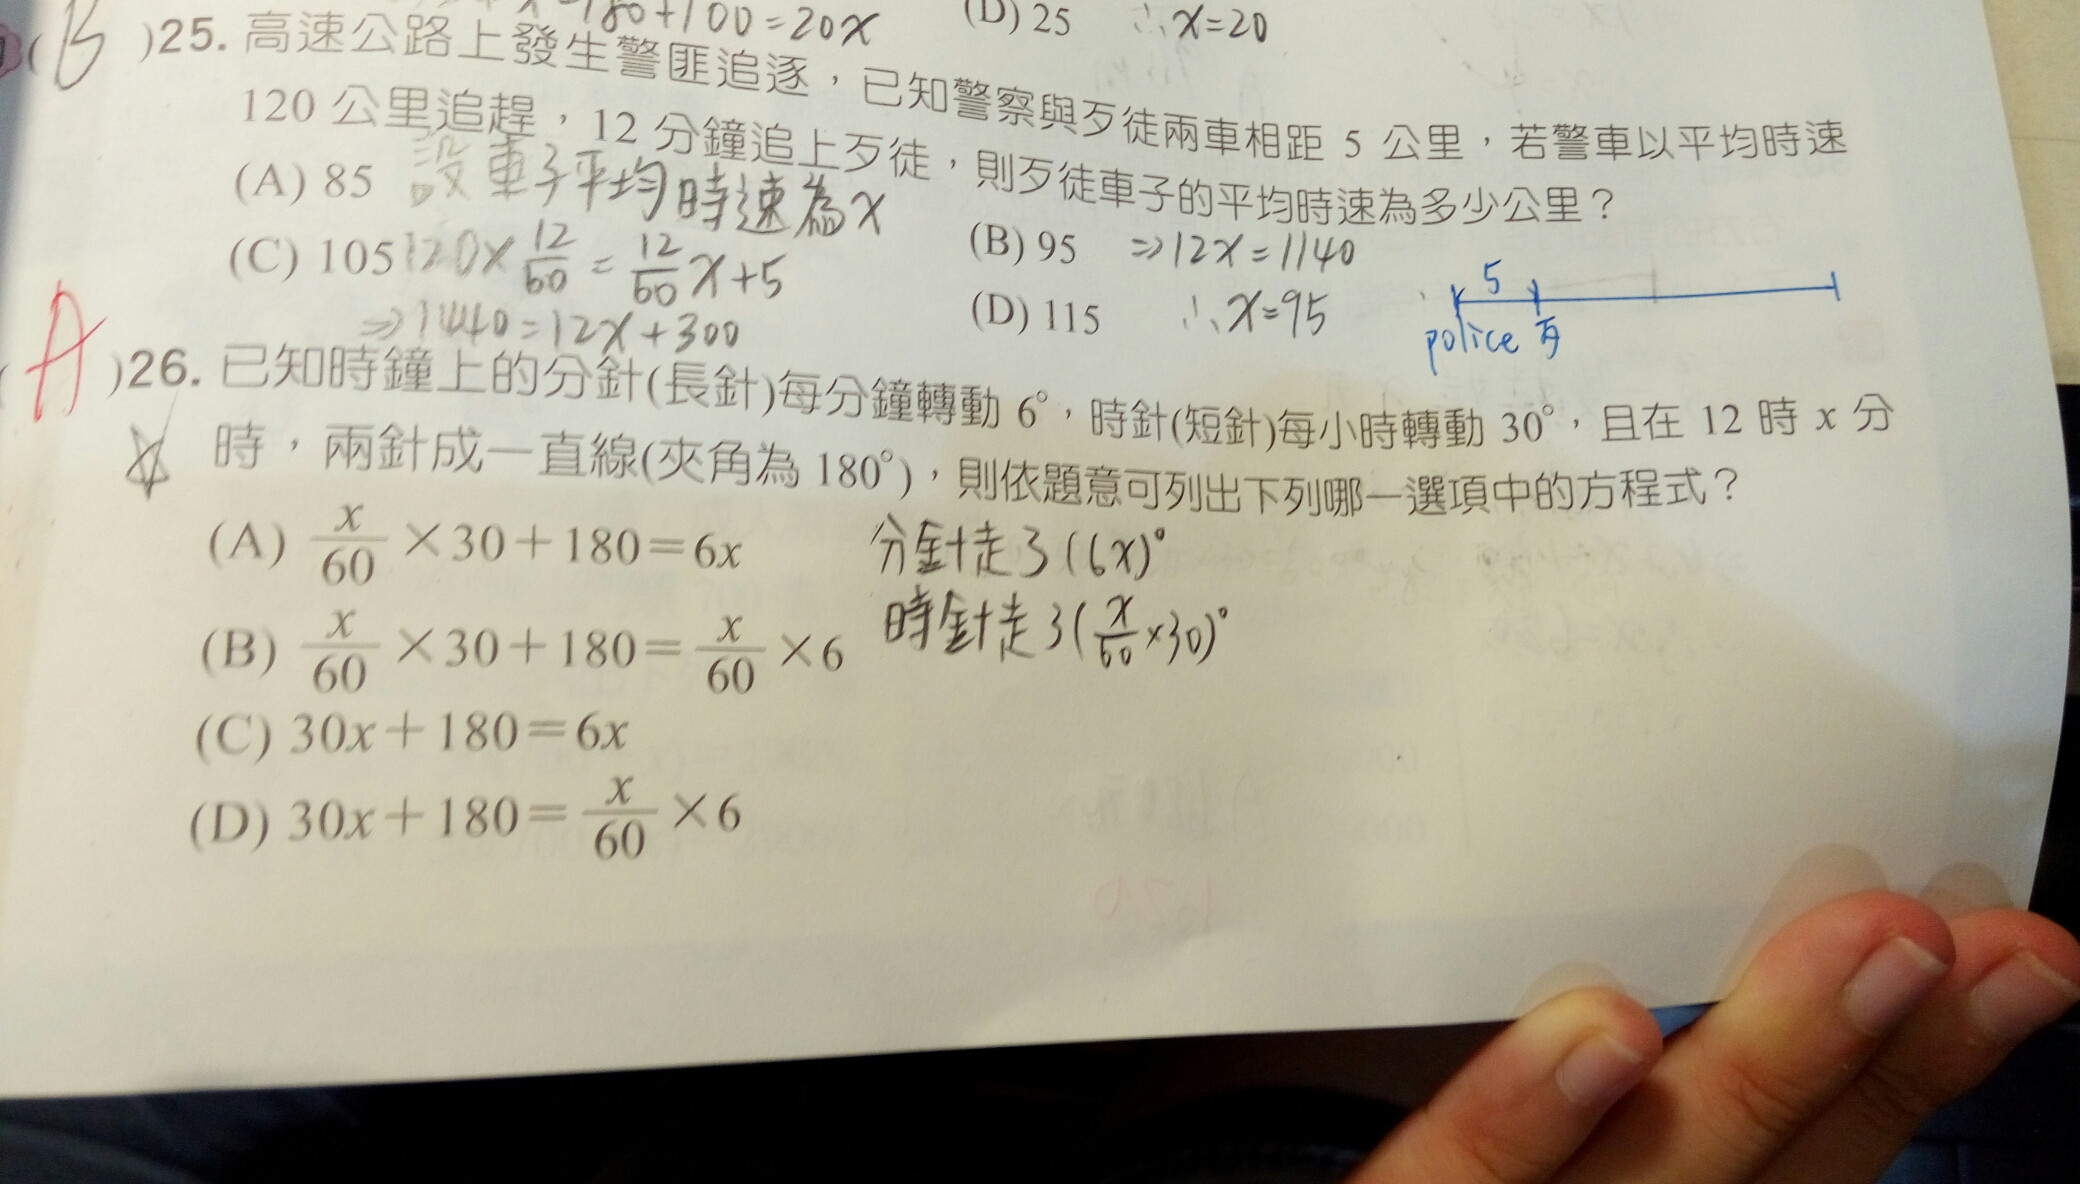 180+100=20x (D) 25 ∴x=20
(B)25. 高速公路上發生警匪追逐，已知警察與歹徒兩車相距 5 公里，若警車以平均時速
120 公里追趕，12 分鐘追上歹徒，則歹徒車子的平均時速為多少公里？
(A) 85 設車子平均時速為x
(B) 95 ⇒12x=1140
(C) 105 120×12/60=12/60x+5
(D) 115 ∴x=95
⇒1440=12x+300
5
police 歹
(A)26. 已知時鐘上的分針(長針)每分鐘轉動 6°，時針(短針)每小時轉動 30°，且在 12 時 x 分
時，兩針成一直線(夾角為 180°)，則依題意可列出下列哪一選項中的方程式？
(A) x/60×30+180=6x 分針走了(6x)°
(B) x/60×30+180=x/60×6 時針走了(x/60×30)°
(C) 30x+180=6x
(D) 30x+180=x/60×6